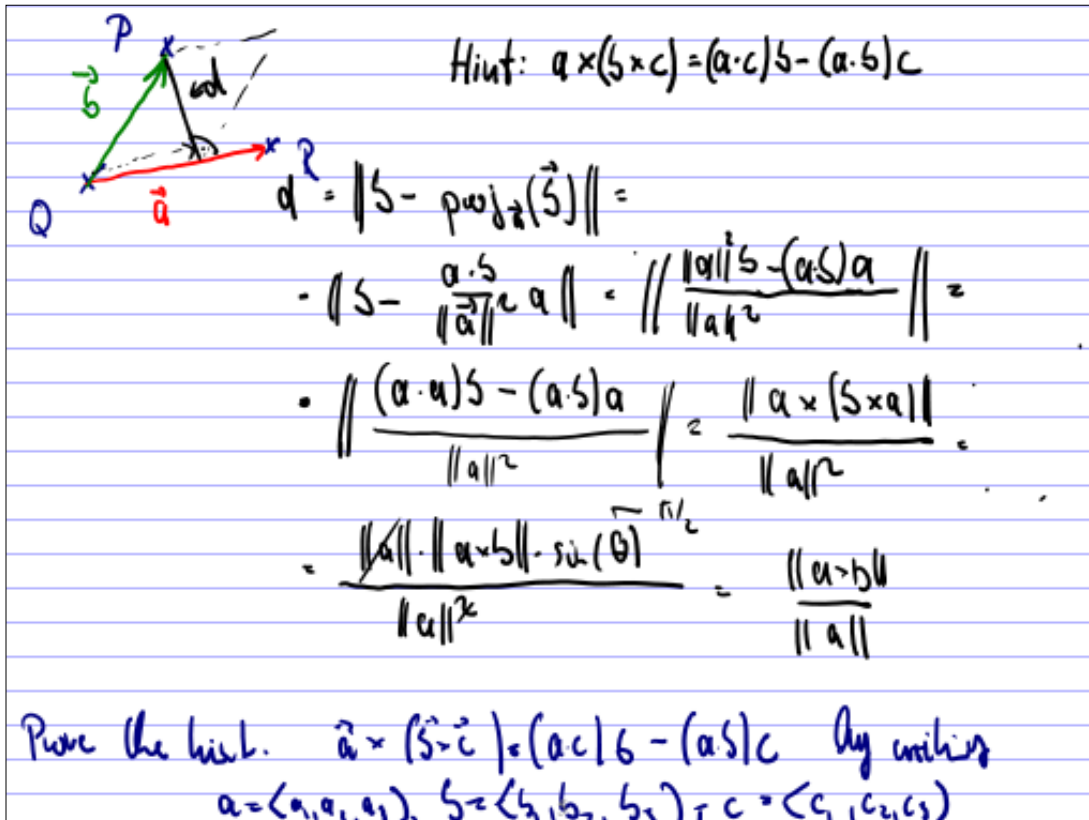 P
Hint: a × (b × c) = (a·c)b − (a·b)c
b⃗
d
R
Q
a⃗
d = ‖b − proj_a⃗(b⃗)‖ =
= ‖b − (a·b)/‖a⃗‖² a‖ = ‖(‖a‖²b − (a·b)a)/‖a‖²‖ =
= ‖((a·a)b − (a·b)a)/‖a‖²‖ = ‖a × (b × a)‖/‖a‖² =
= (‖a‖ · ‖a×b‖ · sin(θ))/‖a‖² = ‖a×b‖/‖a‖
π/2
Prove the hint. a⃗ × (b⃗ × c⃗) = (a·c)b − (a·b)c by writing
a = ⟨a₁, a₂, a₃⟩, b = ⟨b₁, b₂, b₃⟩, c = ⟨c₁, c₂, c₃⟩